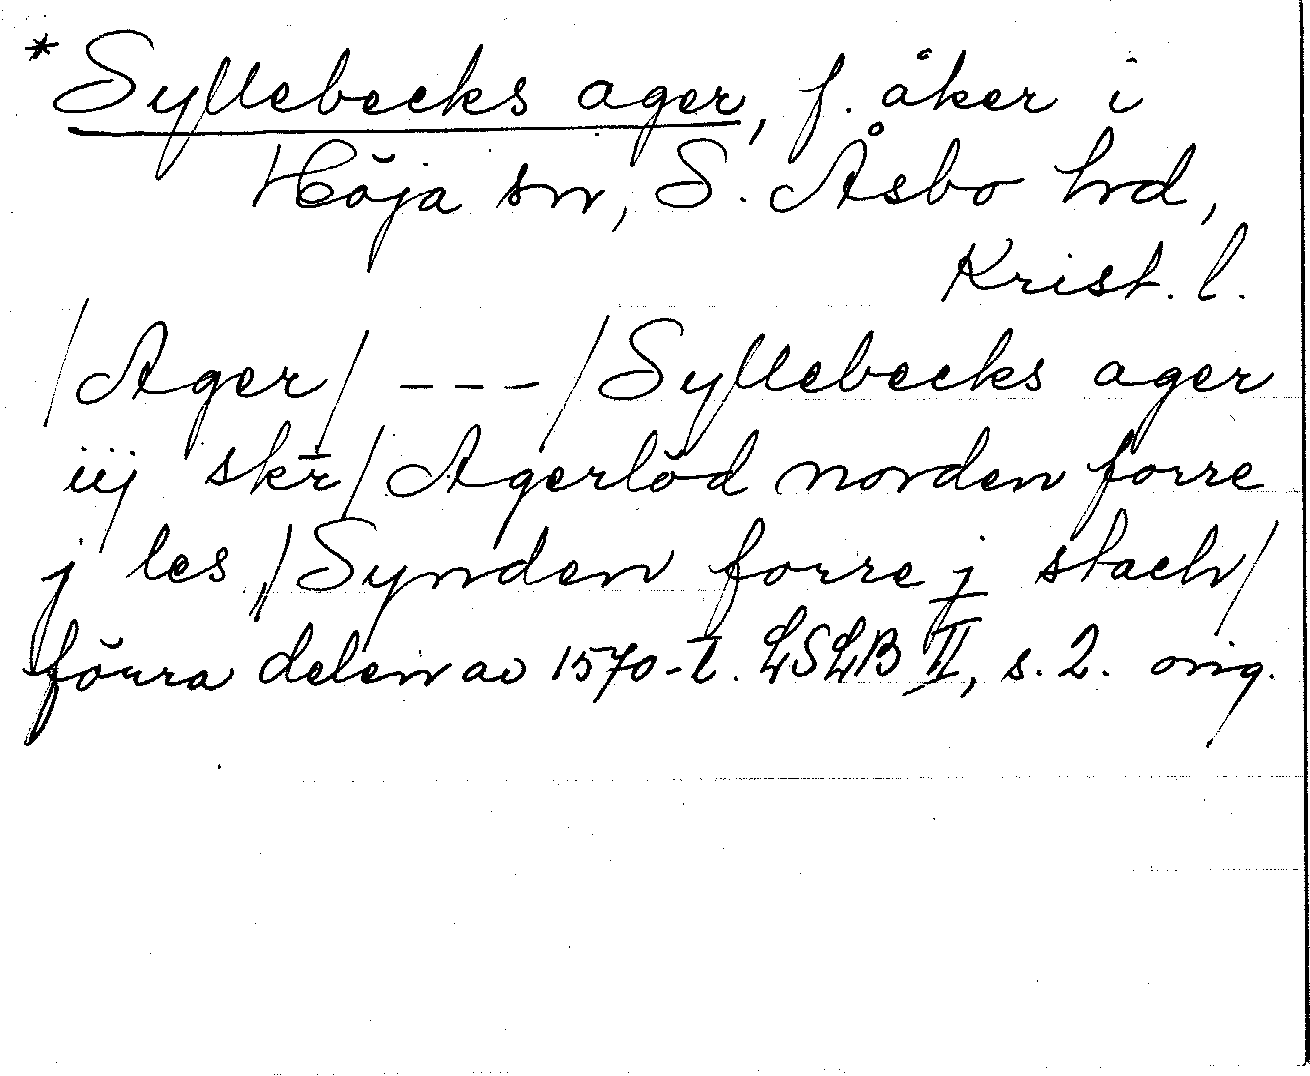 * Syllebecks ager, f. åker i
Höja sn, S. Åsbo hrd,
Krist. l.
/Ager/ --- /Syllebecks ager
iij skr̄/ Agerlöd norden forre
j les /Synden forre j stach/
förra delen av 1570-t. LSLB II, s. 2. orig.